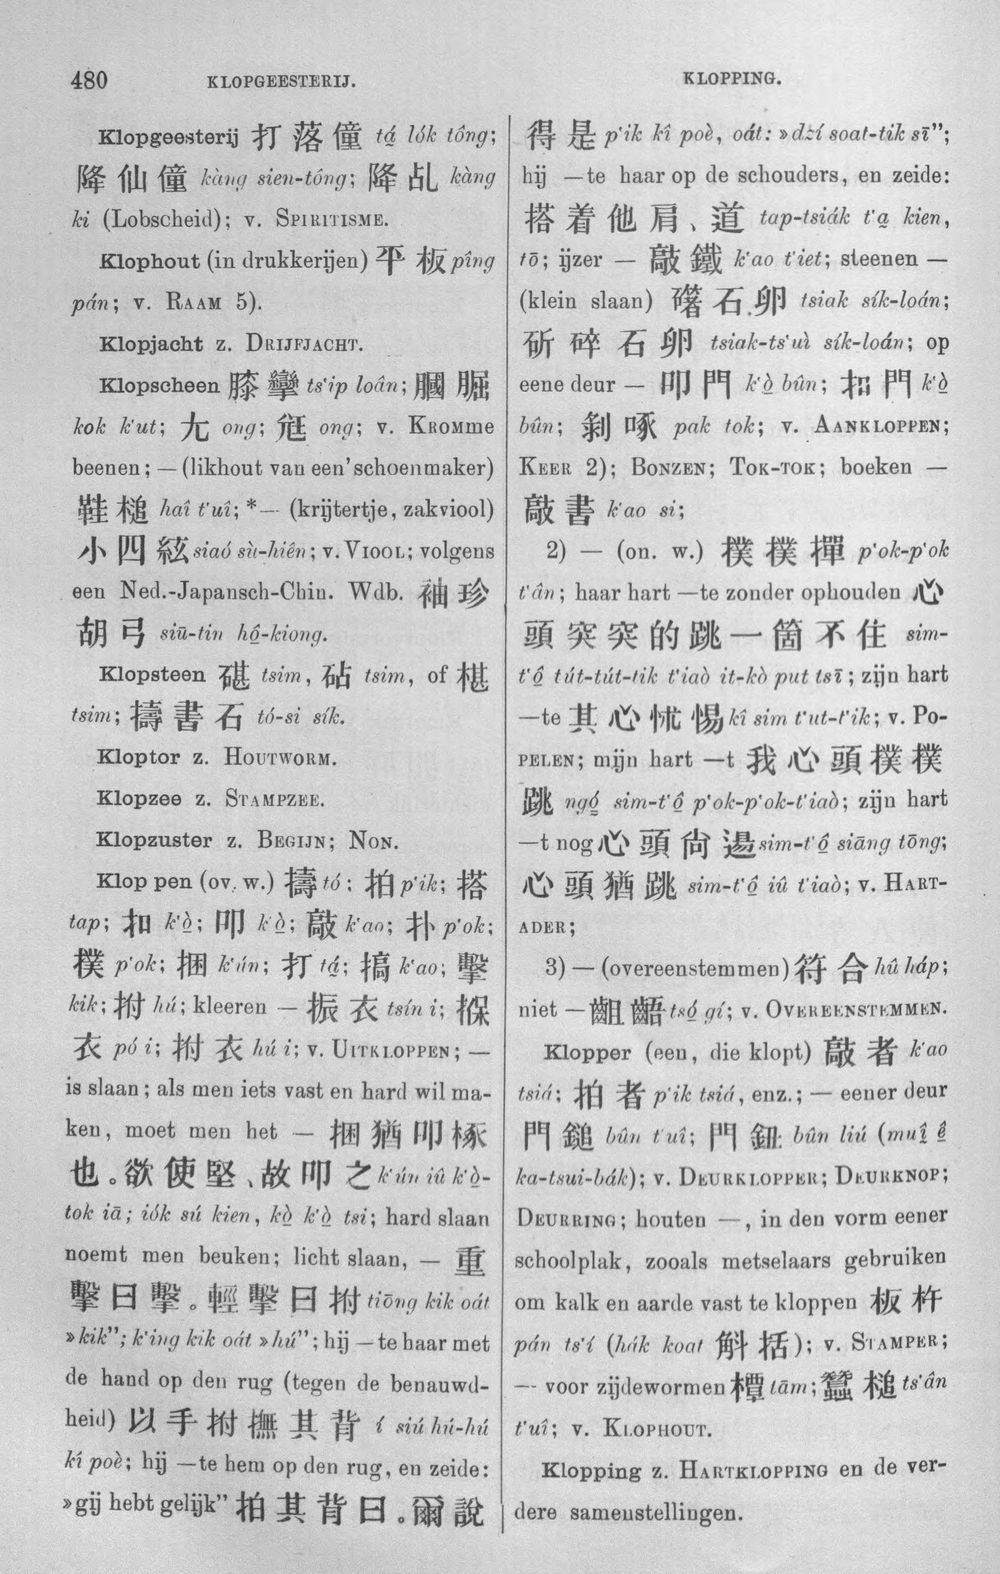 480
KLOPGEESTERIJ.
KLOPPING.
Klopgeesterij 打落僮 tá̤ lók tông;
降仙僮 kàng sien-tông; 降乩 kàng
ki (Lobscheid); v. SPIRITISME.
Klophout (in drukkerijen) 平板 pîng
pán; v. RAAM 5).
Klopjacht z. DRIJFJACHT.
Klopscheen 膝攣 ts'ip loân; 膕朏
kok k'ut; 尢 ong; 尪 ong; v. KROMme
beenen; — (likhout van een' schoenmaker)
鞋槌 haî t'uî; *— (krijtertje, zakviool)
小四絃 siaó sù-hiên; v. VIOOL; volgens
een Ned.-Japansch-Chin. Wdb. 袖珍
胡弓 siū-tin hô-kiong.
Klopsteen 碪 tsim, 砧 tsim, of 椹
tsim; 擣書石 tó-si sík.
Kloptor z. HOUTWORM.
Klopzee z. STAMPZEE.
Klopzuster z. BEGIJN; NON.
Klop pen (ov. w.) 擣 tó; 拍 p'ik; 搭
tap; 扣 k'ò̤; 叩 k'ò̤; 敲 k'ao; 扑 p'ok;
撲 p'ok; 捆 k'ún; 打 tá̤; 搞 k'ao; 擊
kik; 拊 hú; kleeren — 振衣 tsín i; 捰
衣 pó i; 拊衣 hú i; v. UITKLOPPEN; —
is slaan; als men iets vast en hard wil ma-
ken, moet men het — 捆猶叩椓
也。欲使堅、故叩之 k'ún iû k'ò̤-
tok iā; iók sú kien, kò̤ k'ò̤ tsi; hard slaan
noemt men beuken; licht slaan, — 重
擊曰擊。輕擊曰拊 tiōng kik oát
»kik”; k'ing kik oát »hú”; hij —te haar met
de hand op den rug (tegen de benauwd-
heid) 以手拊撫其背 í siú hú-hú
kî poè; hij —te hem op den rug, en zeide:
»gij hebt gelijk” 拍其背曰。爾說
得是 p'ik kî poè, oát: »dzí soat-tik sī”;
hij —te haar op de schouders, en zeide:
搭着他肩、道 tap-tsiák t'a̤ kien,
tō; ijzer — 敲鐵 k'ao t'iet; steenen —
(klein slaan) 䃴石卵 tsiak sík-loán;
斫碎石卵 tsiak-ts'uì sík-loán; op
eene deur — 叩門 k'ò̤ bûn; 扣門 k'ò̤
bûn; 剝啄 pak tok; v. AANKLOPPEN;
KEER 2); BONZEN; TOK-TOK; boeken —
敲書 k'ao si;
2) — (on. w.) 撲撲撣 p'ok-p'ok
t'ân; haar hart —te zonder ophouden 心
頭突突的跳一箇不住 sim-
t'ô̤ tút-tút-tik t'iaò it-kò put tsī; zijn hart
—te 其心怵惕 kî sim t'ut-t'ik; v. PO-
PELEN; mijn hart —t 我心頭撲撲
跳 ngó̤ sim-t'ô̤ p'ok-p'ok-t'iaò; zijn hart
—t nog 心頭尙逿 sim-t'ô̤ siāng tōng;
心頭猶跳 sim-t'ô̤ iû t'iaò; v. HART-
ADER;
3) — (overeenstemmen) 符合 hû háp;
niet — 齟齬 tsó̤ gí; v. OVEREENSTEMMEN.
Klopper (een, die klopt) 敲者 k'ao
tsiá; 拍者 p'ik tsiá, enz.; — eener deur
門鎚 bûn t'uî; 門鈕 bûn liú (muî̤ ê̤
ka-tsui-bák); v. DEURKLOPPER; DEURKNOP;
DEURRING; houten —, in den vorm eener
schoolplak, zooals metselaars gebruiken
om kalk en aarde vast te kloppen 板杵
pán ts'í (hák koat 斛括); v. STAMPER;
— voor zijdewormen 橝 tām; 蠶槌 ts'ân
t'uî; v. KLOPHOUT.
Klopping z. HARTKLOPPING en de ver-
dere samenstellingen.